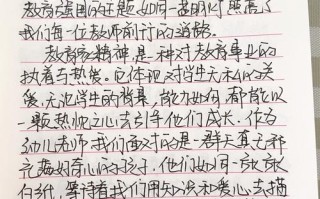 教育强国的主题如同一盏明灯照亮了
我们每一位教师前行的道路。
教育家精神,是一种对教育事业的
执着与热爱。它体现对学生无私的关
爱,无论学生的背景,能力如何,都能以
一颗热忱之心去引导他们成长。作为
幼儿老师我们面对的是一群天真无邪
充满好奇心的孩子,他们如同一张张
白纸,等待着我们用知识和爱心去描